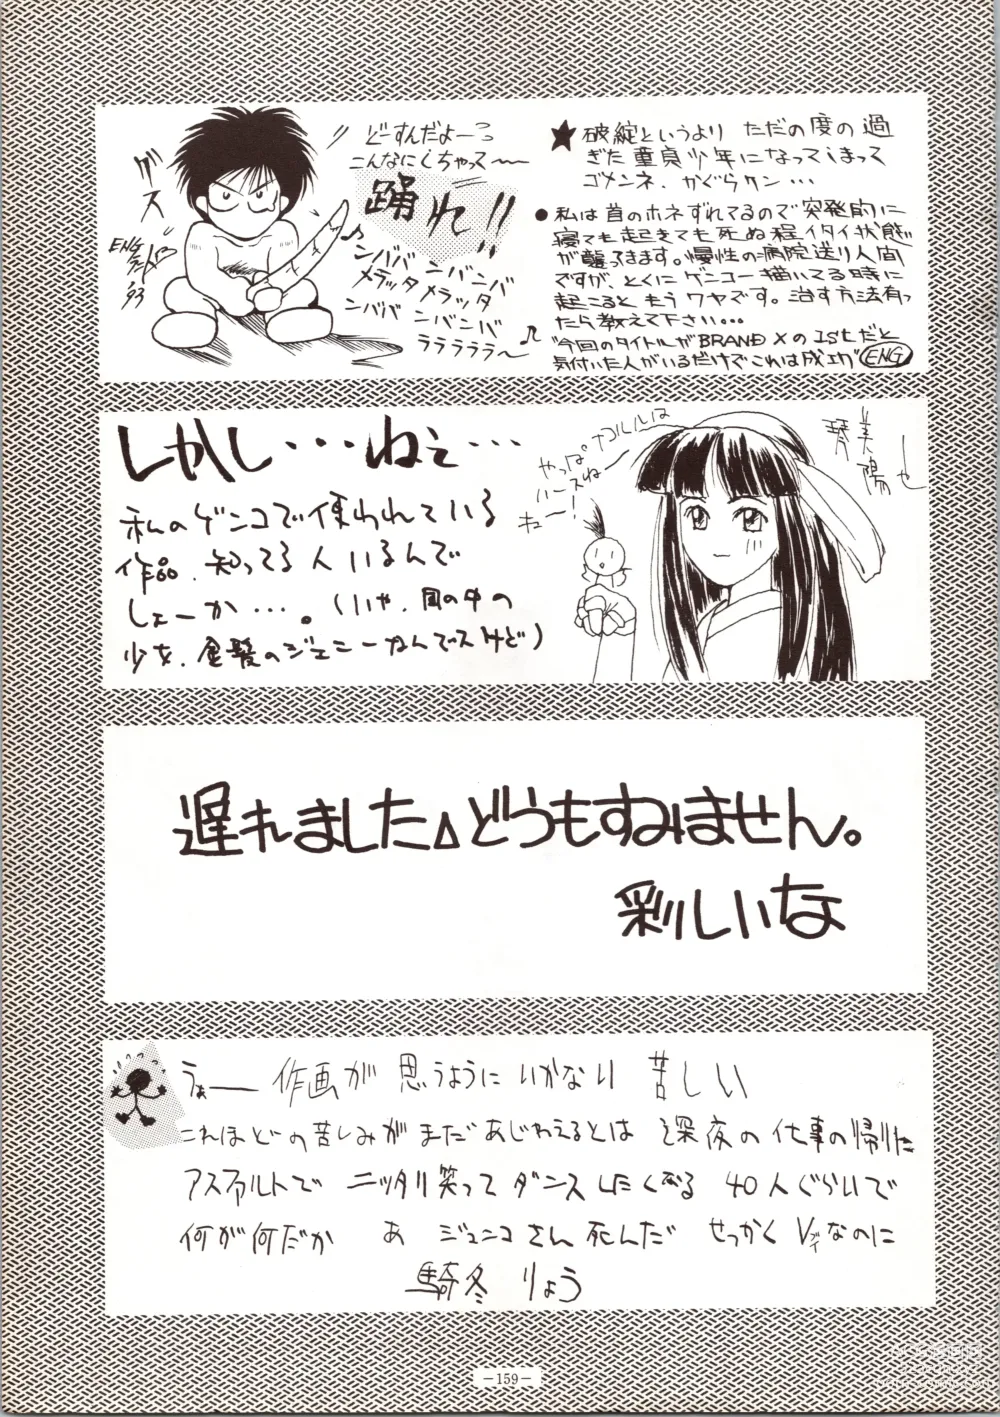 どーすんだよーっ
こんなにしちゃって〜
踊れ!!
グス
'93
ンババ ンバンバ
メラッタメラッタ
ンババ ンバンバ
ララララララ〜
★破綻というより ただの度の過
ぎた童貞少年になってしまって
ゴメンネ、かぐらクン…
●私は首のホネずれてるので突発的に
寝ても起きても死ぬ程イタイ状態
が襲ってきます。慢性の病院送り人間
ですが、とくにゲンコー描いてる時に
起こるともうワヤです。治す方法有っ
たら教えて下さい…
"今回のタイトルがBRAND Xの1stだと
気付いた人がいるだけでこれは成功" ENG
しかし・・・ねぇ・・・
私のゲンコで使われている
作品、知ってる人いるんで
しょーか…。(いや、目の中の
少女、金髪のジェニーなんですけど)
やっぱナコルルは
ハースねー
キュー!
琴美
陽也
遅れました△どうもすみません。
彩しいな
うぁー 作画が 思うように いかない 苦しい
これほどの苦しみが まだ あじわえるとは 深夜の 仕事の帰りに
アスファルトで ニッタリ笑って ダンス したくなる 40人ぐらいで
何が何だか あ ジュンコさん 死んだ せっかく Vブイなのに
騎冬 りょう
－159－